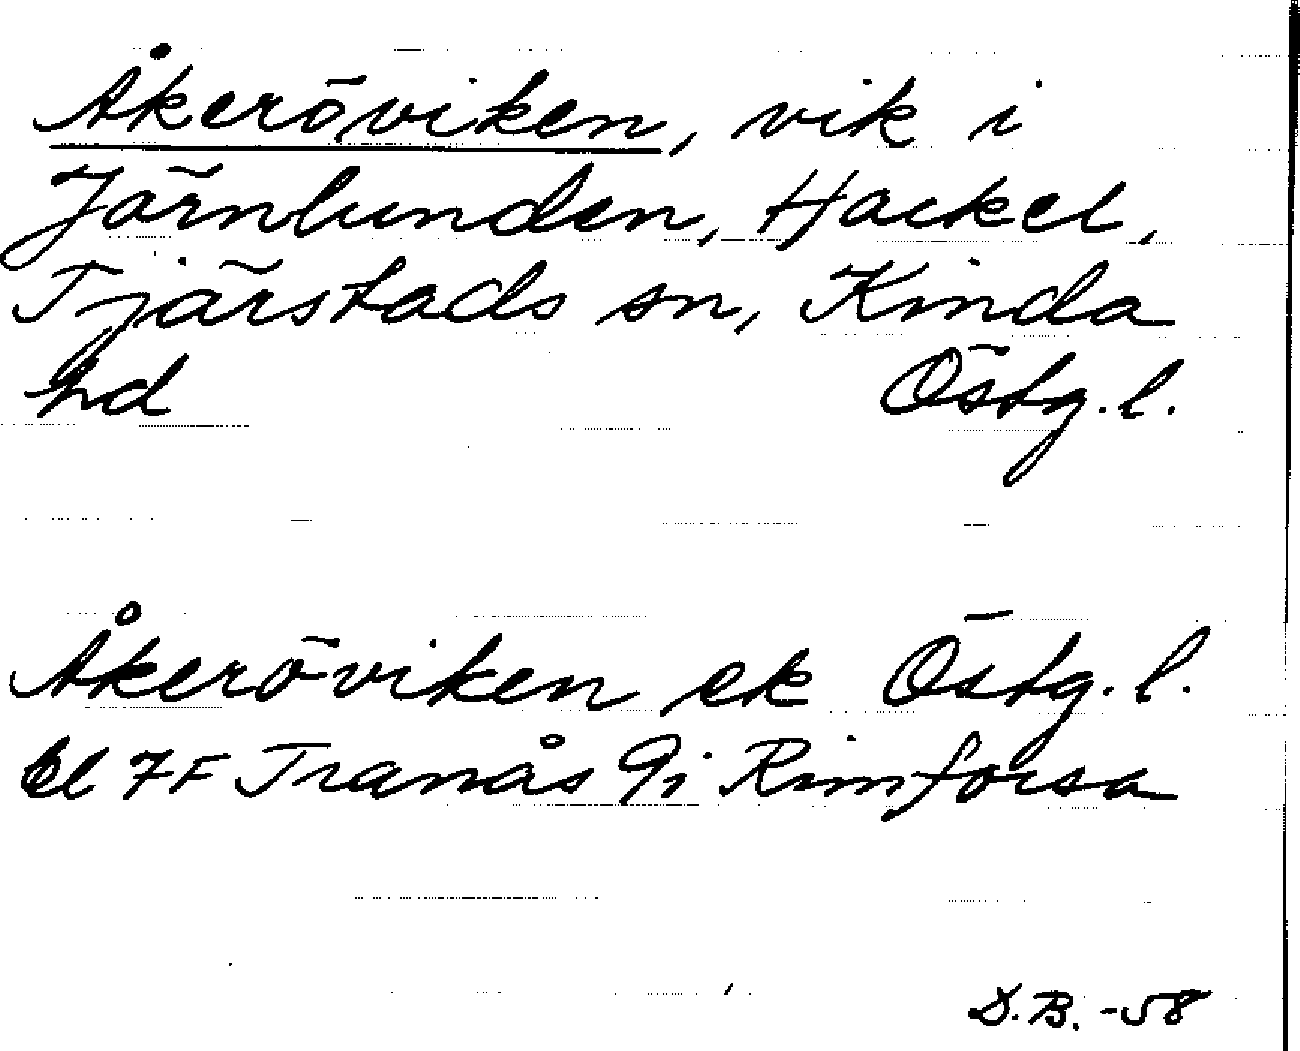 Åkeröviken, vik i
Järnlunden, Hackel,
Tjärstads sn, Kinda
hd Östg. l.
Åkeröviken ek Östg. l.
bl 7F Tranås 9i Rimforsa
D.B. -58